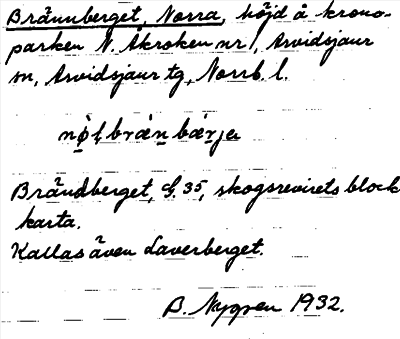 Brännberget, Norra, höjd å krono-
parken N. Akroken nr 1, Arvidsjaur
sn, Arvidsjaur tg, Norrb. l.
Brändberget, 35, skogsrevirets block
karta.
Kallas även Laverberget.
B. Nygren 1932.